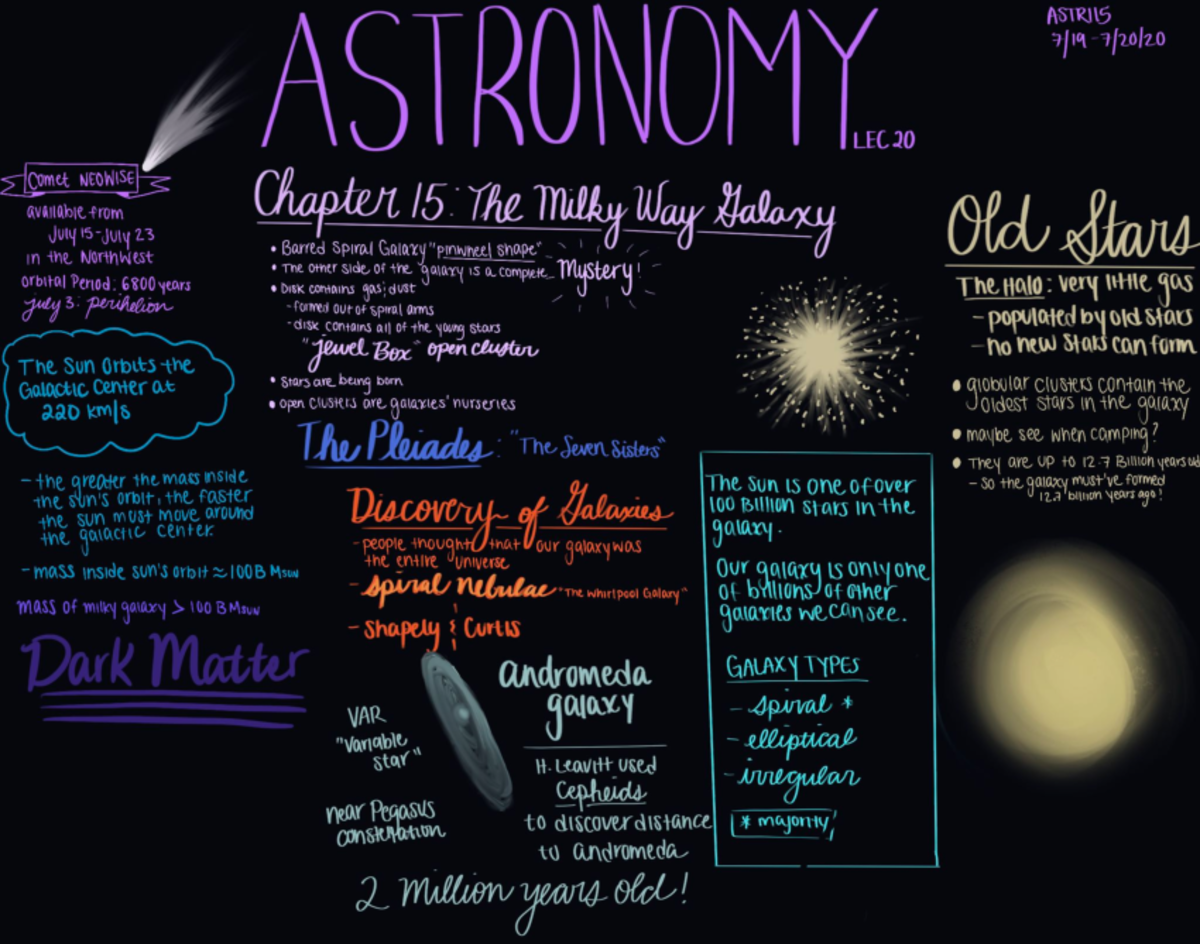 ASTRONOMY
LEC 20
ASTR115
7/19-7/20/20
Comet NEOWISE
available from
July 15-July 23
in the NorthWest
orbital Period: 6800 years
july 3: perihelion
The Sun Orbits the
Galactic Center at
220 km/s
- the greater the mass inside
the sun's orbit, the faster
the sun must move around
the galactic center.
- mass inside sun's orbit ≈ 100 B Msun
mass of milky galaxy > 100 B Msun
Dark Matter
Chapter 15: The Milky Way Galaxy
• Barred Spiral Galaxy "pinwheel shape"
• The other side of the galaxy is a complete Mystery!
• Disk contains gas & dust
- formed out of spiral arms
- disk contains all of the young stars
"Jewel Box" open cluster
• Stars are being born
• open clusters are galaxies' nurseries
The Pleiades: "The Seven Sisters"
Discovery of Galaxies
- people thought that our galaxy was
the entire universe
- spiral nebulae "The Whirlpool Galaxy"
- Shapely & Curtis
andromeda
galaxy
VAR
"Variable
star"
near Pegasus
constellation
H. Leavitt used
Cepheids
to discover distance
to andromeda
2 Million years old!
The Sun is one of over
100 Billion stars in the
galaxy.
Our galaxy is only one
of billions of other
galaxies we can see.
GALAXY TYPES
- spiral *
- elliptical
- irregular
* majority
Old Stars
The Halo: very little gas
- populated by old stars
- no new stars can form
• globular clusters contain the
oldest stars in the galaxy
• maybe see when camping?
• They are up to 12.7 Billion years old
- so the galaxy must've formed
12.7 billion years ago!